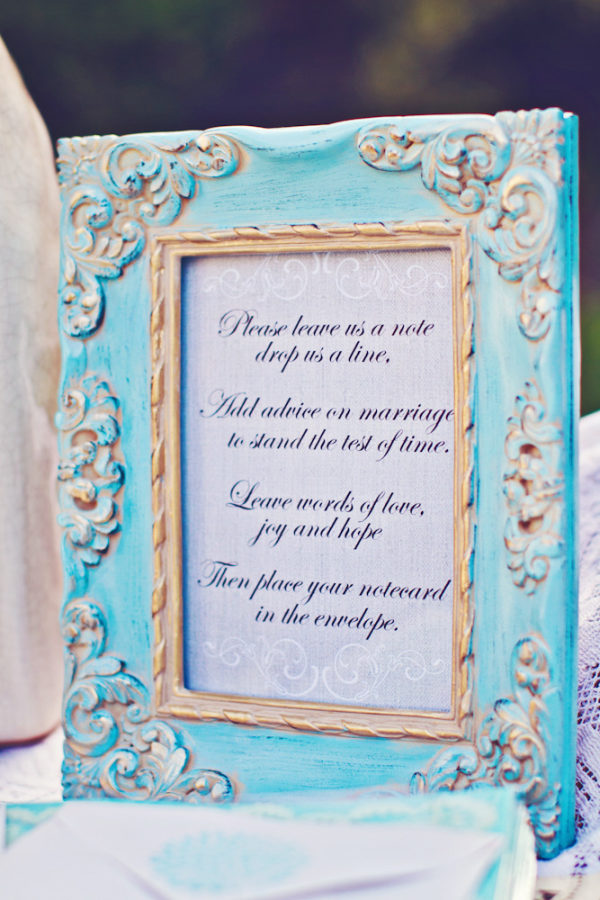 Please leave us a note
drop us a line,
Add advice on marriage
to stand the test of time.
Leave words of love,
joy and hope
Then place your notecard
in the envelope.